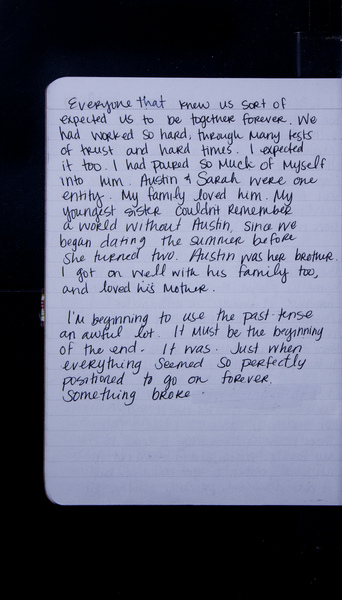 Everyone that knew us sort of
expected us to be together forever. We
had worked so hard, through many tests
of trust and hard times. I expected
it too. I had poured so much of myself
into him. Austin & Sarah were one
entity. My family loved him. My
youngest sister couldnt remember
a world without Austin, since we
began dating the summer before
she turned two. Austin was her brother.
I got on well with his family too,
and loved his mother.
I'm beginning to use the past-tense
an awful lot. It must be the beginning
of the end. It was. Just when
everything seemed so perfectly
positioned to go on forever,
something broke.